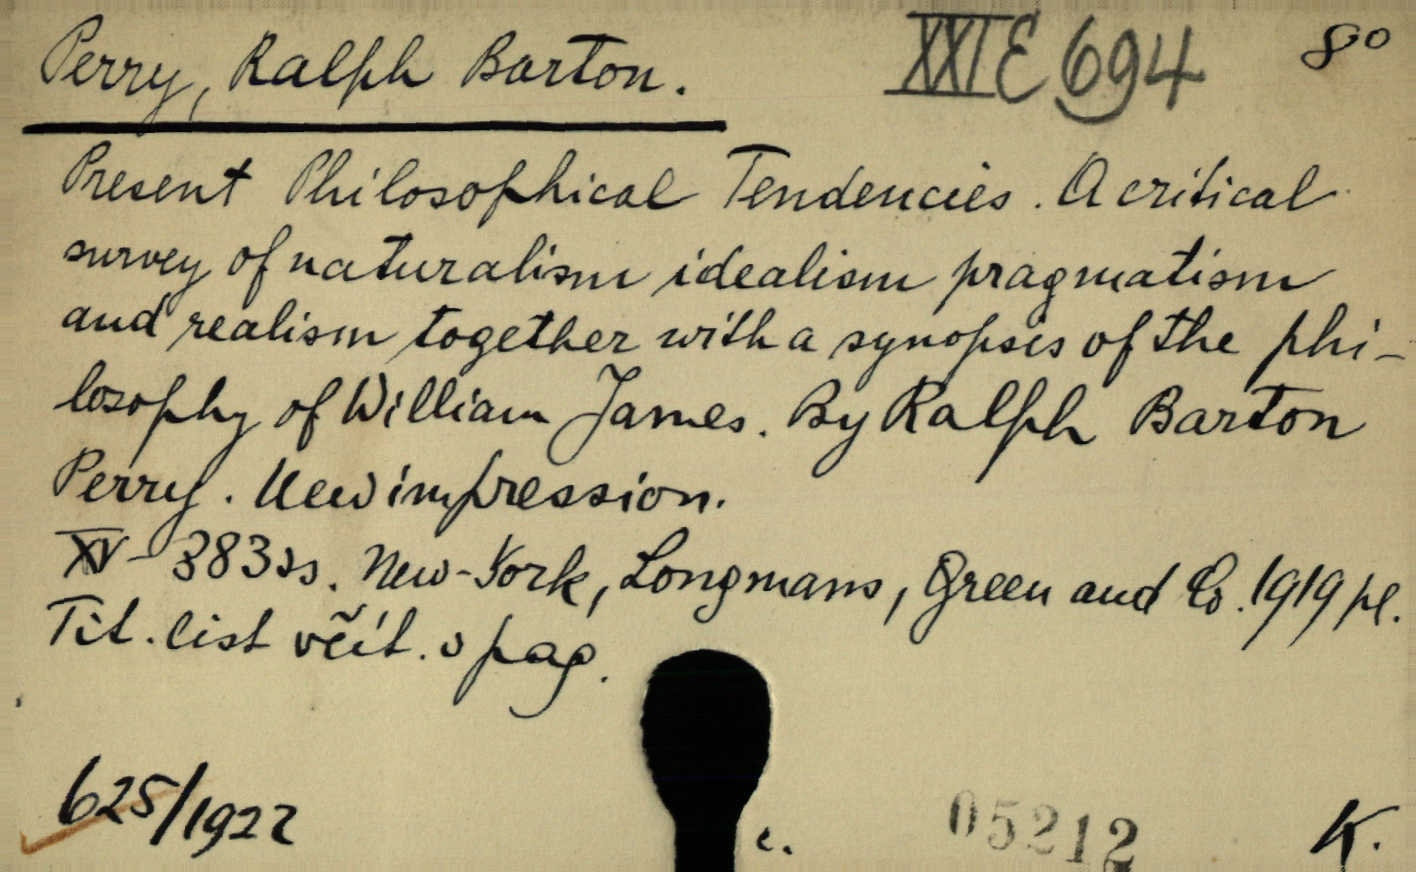 Perry, Ralph Barton. XXI E 694 8°
Present Philosophical Tendencies. A critical
survey of naturalism idealism pragmatism
and realism together with a synopsis of the phi-
losophy of William James. By Ralph Barton
Perry. New impression.
XV - 383 ss. New-York, Longmans, Green and Co. 1919 pl.
Tit. list včít. v pag.
625/1922 c. 05212 K.